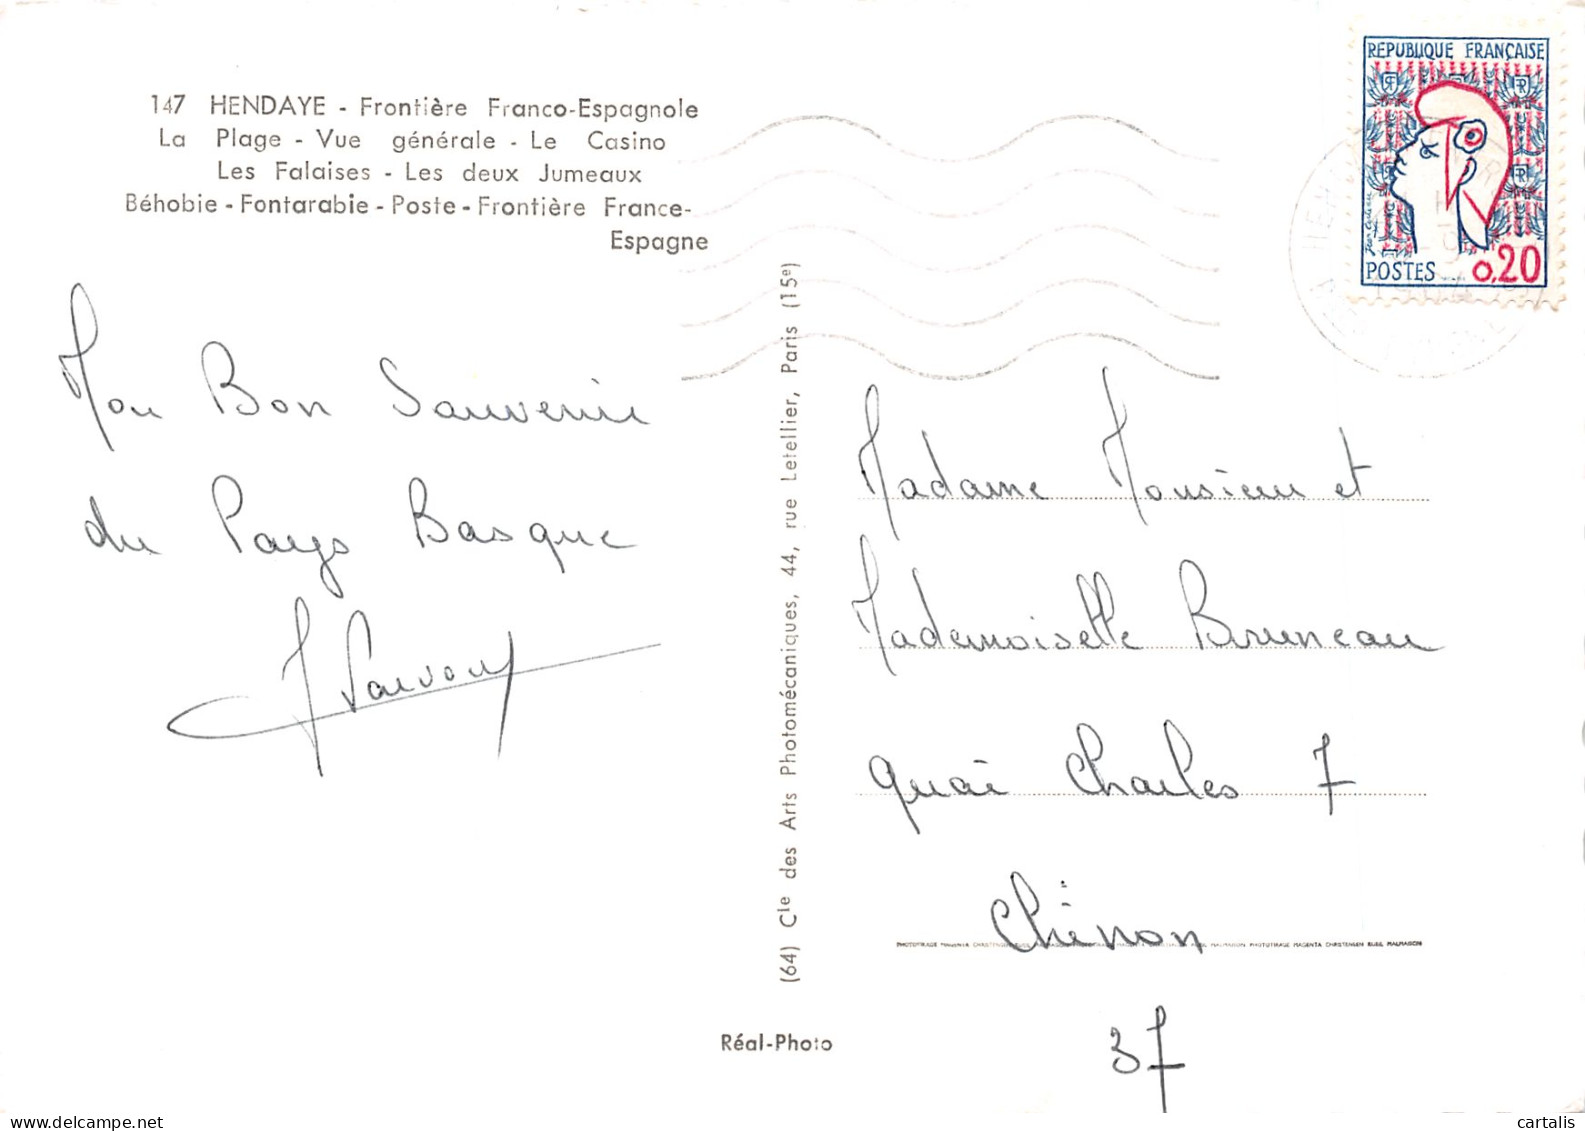 147 HENDAYE - Frontière Franco-Espagnole
La Plage - Vue générale - Le Casino
Les Falaises - Les deux Jumeaux
Béhobie - Fontarabie - Poste - Frontière France-
Espagne
REPUBLIQUE FRANÇAISE
POSTES 0,20
Mon Bon Souvenir
du Pays Basque
(64) Cie des Arts Photomécaniques, 44, rue Letellier, Paris (15e)
Madame Monsieur et
Mademoiselle Bruneau
quai Charles 7
Chinon
37
Réal-Photo
www.delcampe.net
cartalis